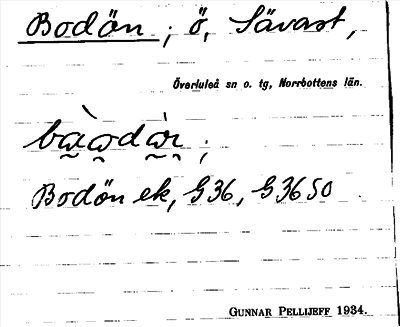 Bodön ; ö, Sävast,
Överluleå sn o. tg, Norrbottens län.
Bodön ek, G36, G3650
GUNNAR PELLIJEFF 1934.